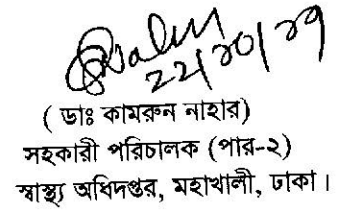 ( ডাঃ কামরুন নাহার)
সহকারী পরিচালক (পার-২)
স্বাস্থ্য অধিদপ্তর, মহাখালী, ঢাকা।